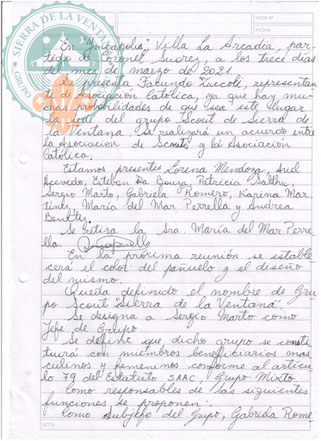 SIERRA DE LA VENTANA
GRUPO
HOJA Nº
FECHA
En "Jneápolis", Villa La Arcadia, par-
tido de Coronel Suarez, a los trece días
del mes de marzo de 2021.
Se presenta Facundo Zuccoli, representan
te de Asociación Católica, ya que hay mu-
chas probabilidades de que sea este lugar
la sede del grupo Scout de Sierra de
la Ventana. Se realizará un acuerdo entre
la Asociación de Scouts y la Asociación
Católica.
Estamos presentes Lorena Mendoza, Ariel
Acevedo, Esteban Da Souza, Patricia
Sergio Marto, Gabriela Romero, Karina Mar
tínez, María del Mar Perrella y Andrea
Benítes.
Se retira la Sra. María del Mar Perre-
lla.
En la próxima reunión se estable-
cerá el color del pañuelo y el diseño
del mismo.
Queda definido el nombre de Gru
po Scout "Sierra de la Ventana"
Se designa a Sergio Marto como
Jefe de Grupo.
Se define que dicho grupo se consti
tuirá con miembros beneficiarios mas
culinos y femeninos conforme al artícu
lo 79 del Estatuto SAAC, Grupo Mixto.
Como responsables de las siguientes
funciones se proponen:
Como Subjefe del Grupo, Gabriela Rome
NOTA